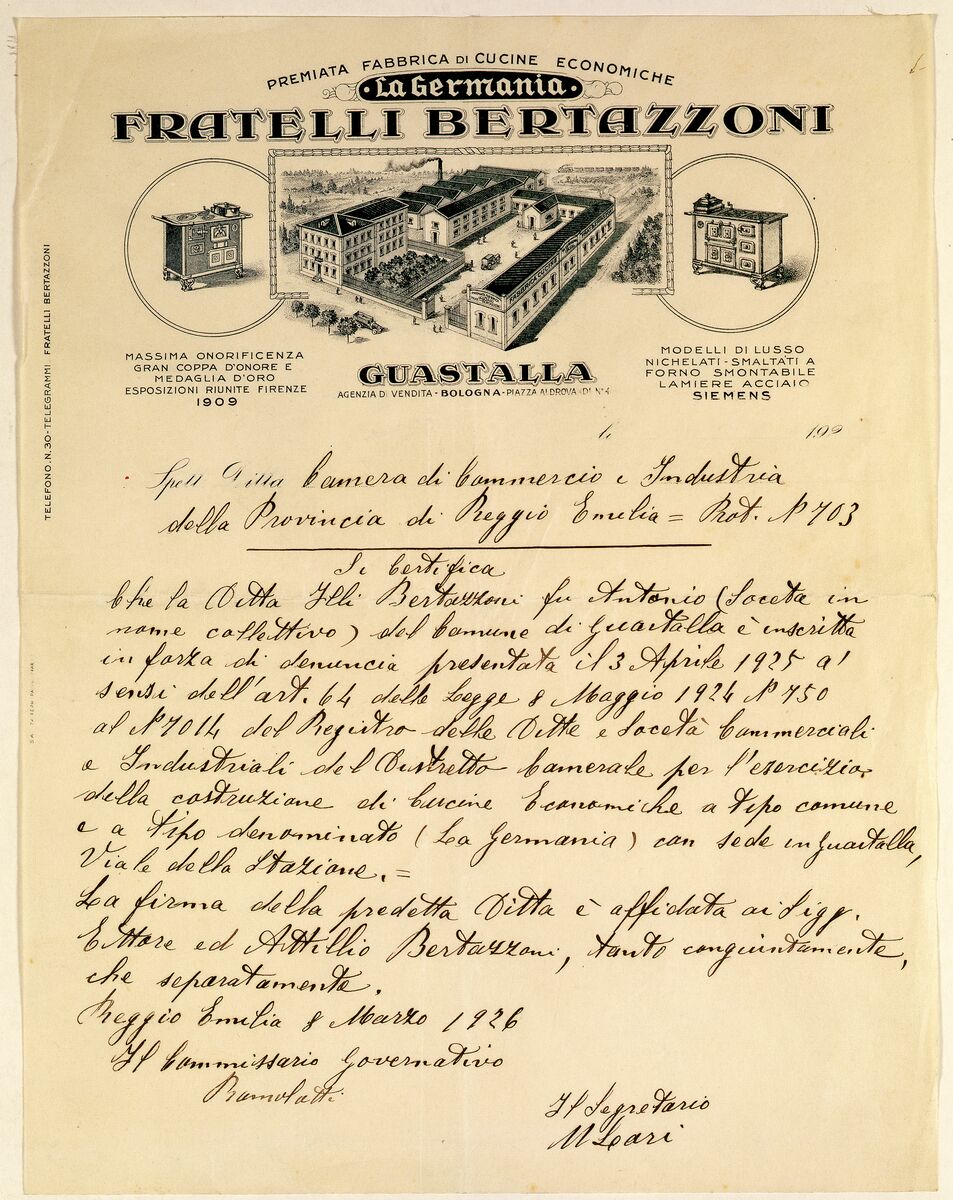 PREMIATA FABBRICA DI CUCINE ECONOMICHE
La Germania
FRATELLI BERTAZZONI
MASSIMA ONORIFICENZA
GRAN COPPA D'ONORE E
MEDAGLIA D'ORO
ESPOSIZIONI RIUNITE FIRENZE
1909
GUASTALLA
AGENZIA DI VENDITA - BOLOGNA - PIAZZA ALDROVANDI N° 4
MODELLI DI LUSSO
NICHELATI - SMALTATI A
FORNO SMONTABILE
LAMIERE ACCIAIO
SIEMENS
TELEFONO. N. 30 - TELEGRAMMI FRATELLI BERTAZZONI
li 192
Spett Ditta Camera di Commercio e Industria
della Provincia di Reggio Emilia = Prot. N 703
Si Certifica
Che la Ditta Flli Bertazzoni fu Antonio (Soceta in
nome collettivo) del Comune di Guastalla è inscritta
in forza di denuncia presentata il 3 Aprile 1925 a'
sensi dell'art. 64 della Legge 8 Maggio 1924 N 750
al N 7014 del Registro delle Ditte e Socetà Commerciali
e Industriali del Distretto Camerale per l'esercizio
della costruzione di Cucine Economiche a tipo comune
e a tipo denominato (La Germania) con sede in Guastalla,
Viale della Stazione. =
La firma della predetta Ditta è affidata ai Sigg.
Ettore ed Attillio Bertazzoni, tanto congiuntamente,
che separatamente.
Reggio Emilia 8 Marzo 1926
Il Commissario Governativo
Ramolotti
Il Segretario
M Leari